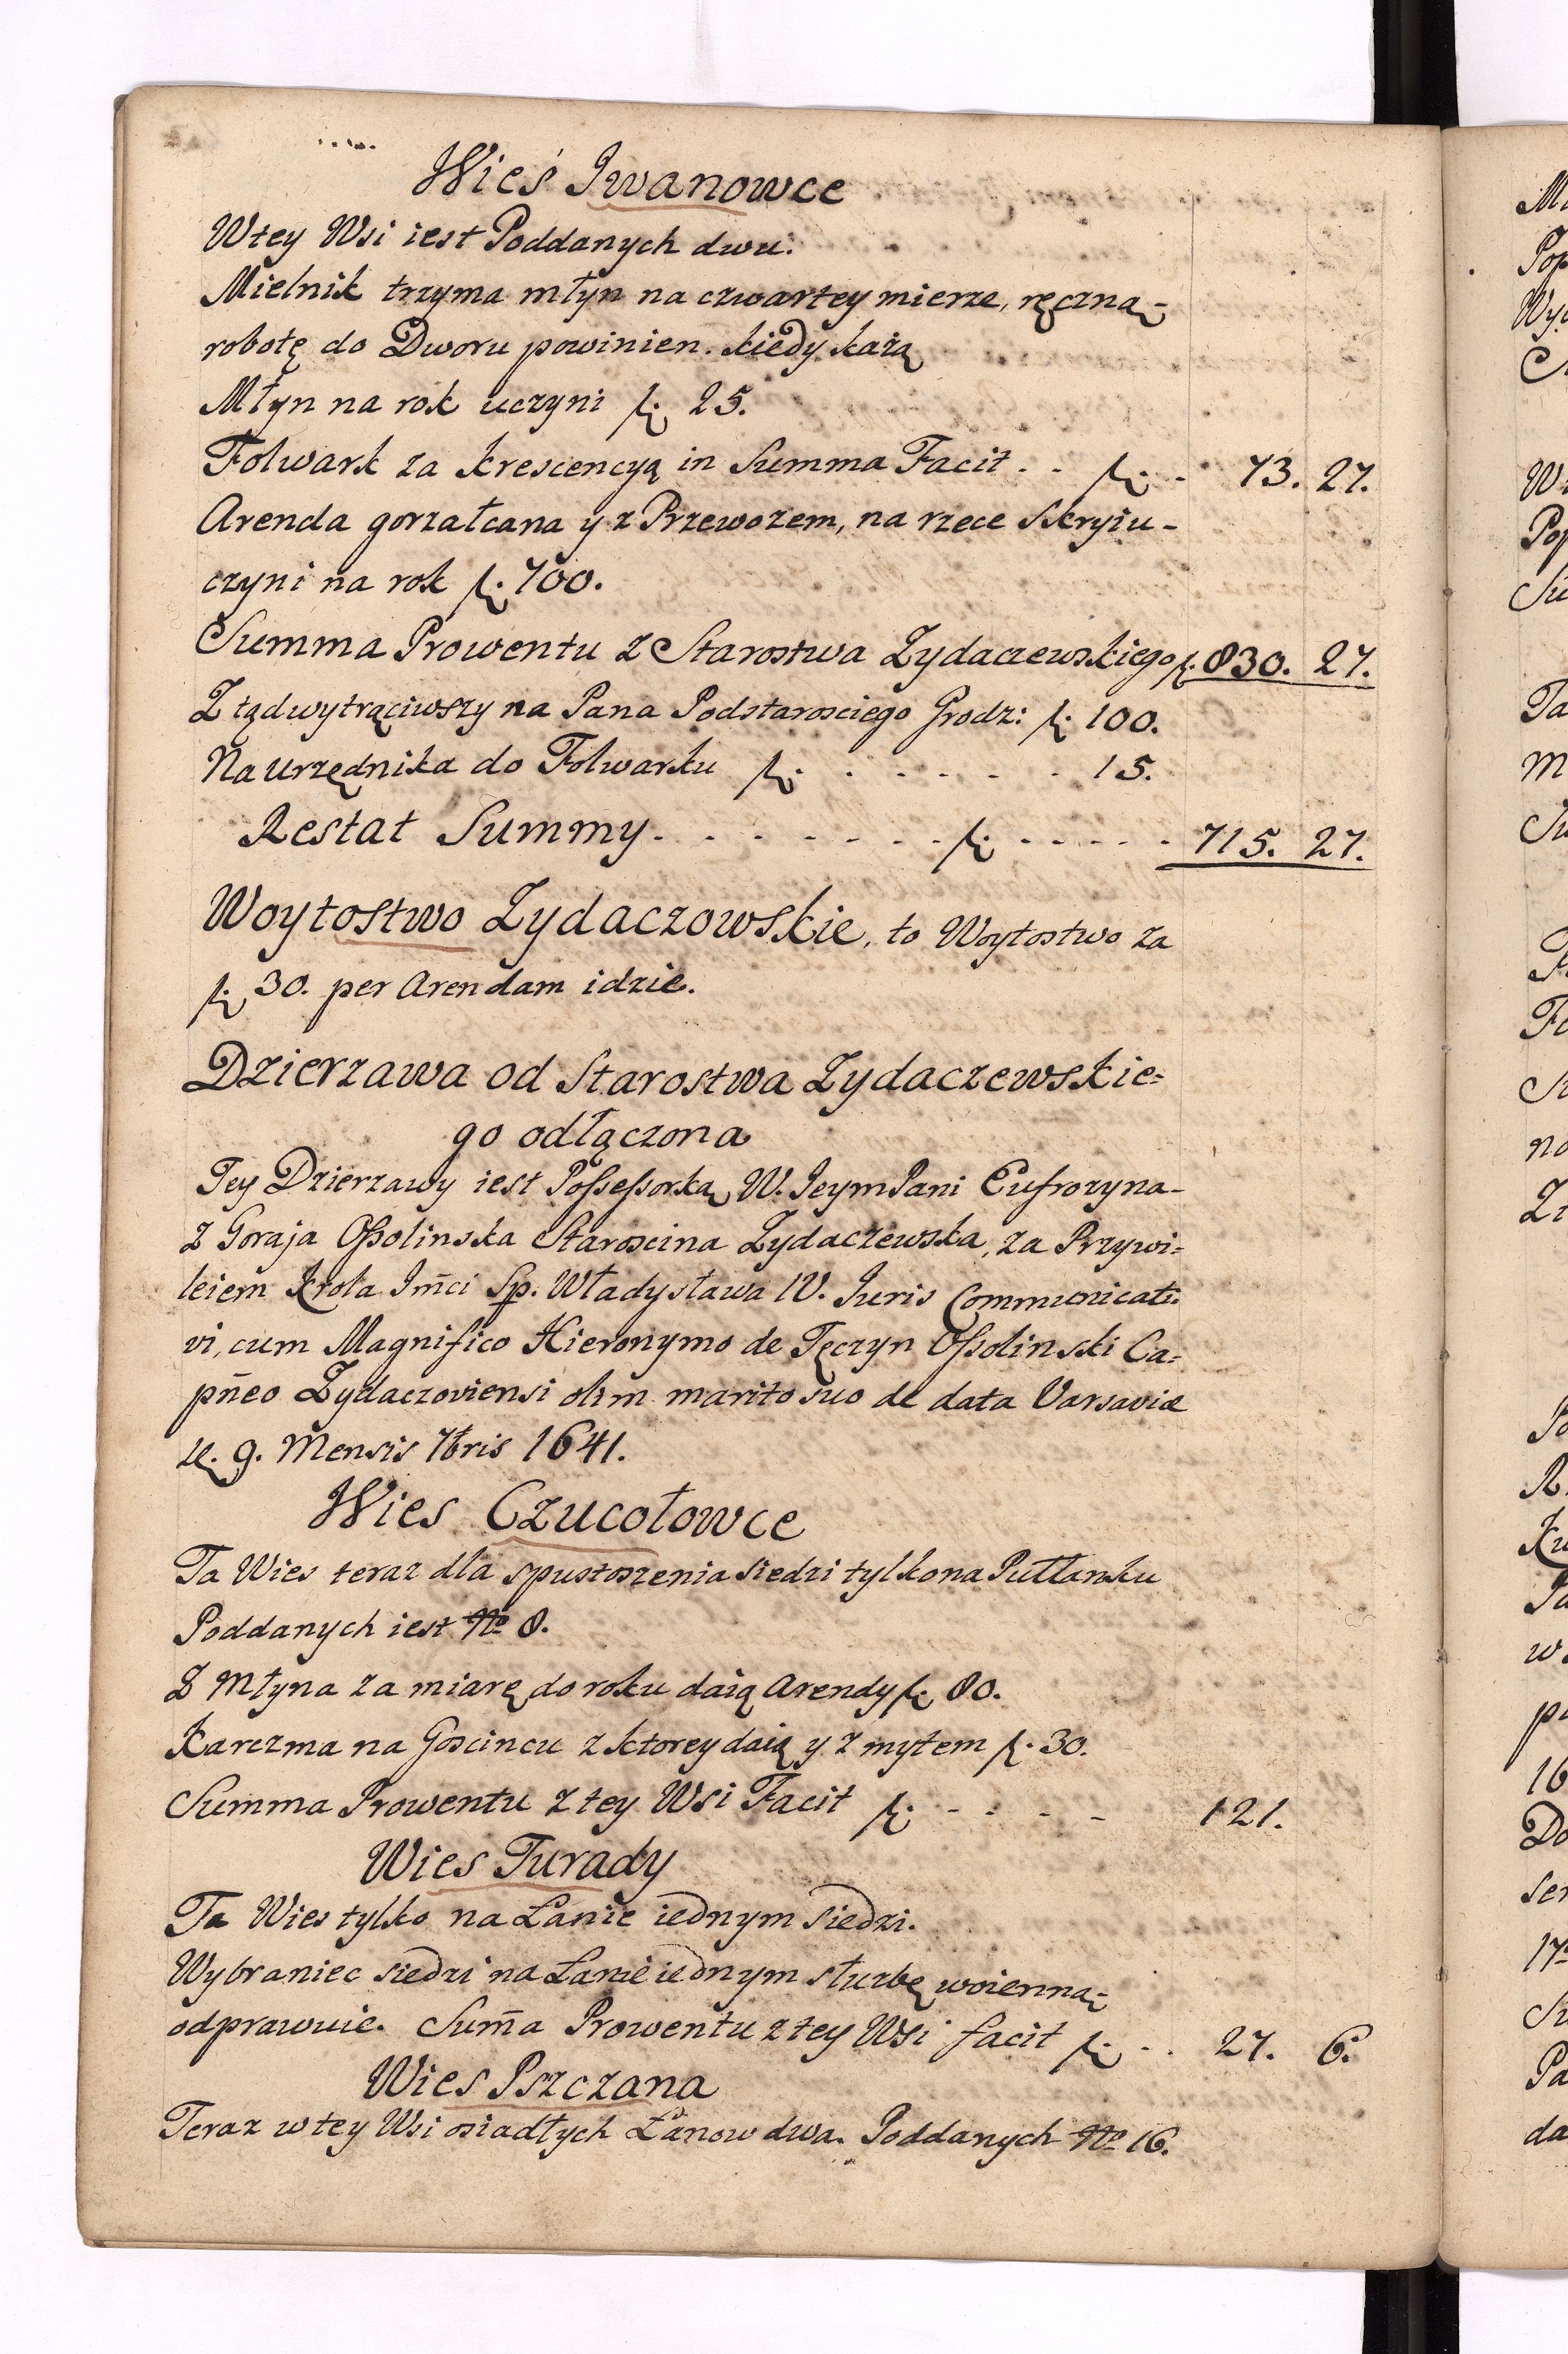 Wieś Iwanowce
Wtey Wsi iest Poddanych dwu.
Mielnik trzyma młyn na czwartey mierze, ręczną-
robotę do Dworu powinien. kiedy każą
Młyn na rok uczyni f. 25.
Folwark za krescencyą in Summa Facit . . f. - 73. 27.
Arenda gorzałcana y z Przewozem, na rzece Skryiu-
czyni na rok f. 700.
Summa Prowentu z Starostwa Zydaczewskiego f. 830. 27.
Z tąd wytrąciwszy na Pana Podstarosciego Grodz: f. 100.
Na urzędnika do Folwarku f. . . . . . . 15.
Restat Summy. . . . . . . . f. . . . . . 715. 27.
Woytostwo Zydaczowskie, to Woytostwo za
f. 30. per Arendam idzie.
Dzierzawa od Starostwa Zydaczewskie=
go odłączona
Tey Dzierzawy iest Possessorką W. JeymPani Eufrozyna-
z Goraja Ossolinska Staroscina Zydaczewska, za Przywi=
leiem Krola Jm̃ci Sp. Władysława IV. Juris Communicati=
vi, cum Magnifico Hieronymo de Tęczyn Ossolinski Ca=
pñeo Zydaczoviensi olim marito suo de data Varsaviæ
9. Mensis 7bris 1641.
Wies Czucołowce
Ta Wies teraz dla spustoszenia siedzi tylko na Pułłanku
Poddanych iest No 8.
Z Młyna za miarę do roku daią Arendy f. 80.
Karczma na Goscincu z ktorey daią y z mytem f. 30.
Summa Prowentu z tey Wsi Facit f. - - - - 121.
Wies Turady
Ta Wies tylko na Łanie iednym siedzi.
Wybraniec siedzi na Łanie iednym służbę woienną-
odprawuie. Sum̃a Prowentu z tey Wsi facit f. . . 27. 6.
Wies Pszczana
Teraz w tey Wsi osiadłych Łanow dwa. Poddanych No 16.